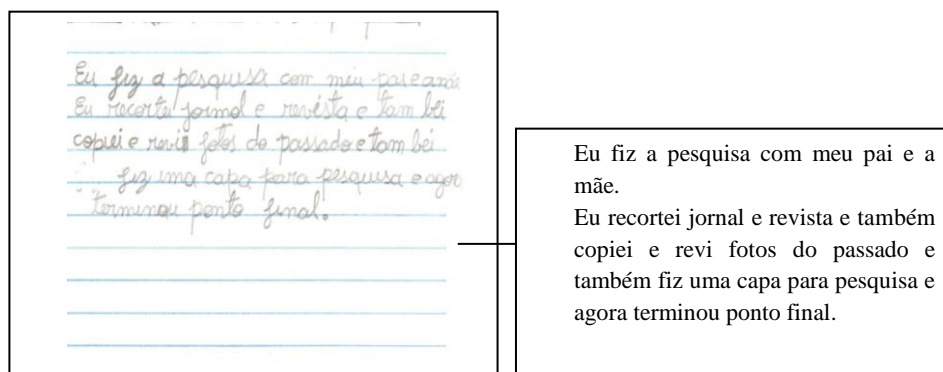 Eu fiz a pesquisa com meu pai e a mãe
Eu recortei jornal e revista e tam béi
copiei e revi fotos do passado e tam bei
fiz ima capa para pesquisa e agor
terminou ponto final.
Eu fiz a pesquisa com meu pai e a
mãe.
Eu recortei jornal e revista e também
copiei e revi fotos do passado e
também fiz uma capa para pesquisa e
agora terminou ponto final.